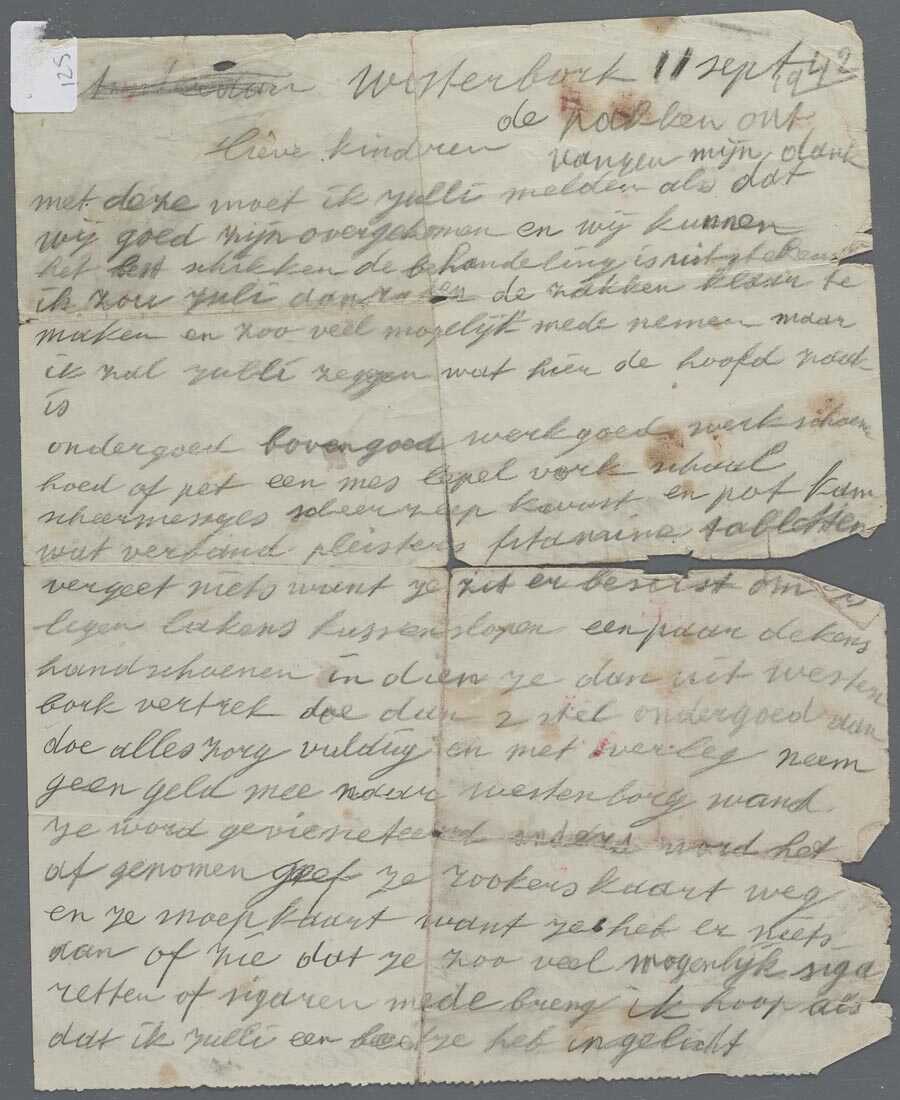 125
Westerbork 11 sept 1942
de pakken ont
Lieve kinderen vangen mijn dank
met deze moet ik jullie melden als dat
wij goed zijn overgekomen en wij kunnen
het best schikken de behandeling is uitstekend
ik zou juli dan raden de zakken klaar te
maken en zoo veel mogelijk mede nemen maar
ik zal julli zeggen wat hier de hoofd zaak
is
ondergoed bovengoed werkgoed werk schoene
hoed of pet een mes lepel vork schaal
scheermesjes scheerzeep kwast en pot kam
wat verband pleisters fitamine tabletten
vergeet niets want je zit er beserst om
legen lakens kussenslopen een paar dekens
handschoenen in dien je dan uit westen
bork vertrek doe dan 2 stel ondergoed aan
doe alles zorg vuldig en met overleg neem
geen geld mee naar westenborg wand
je word gevieseteerd anders word het
af genomen geef je rookerskaart weg
en je snoepkaart want je heb er niets
aan of zie dat je zoo veel mogenlijk siga
retten of sigaren mede breng ik hoop als
dat ik julli een beetje heb ingelicht